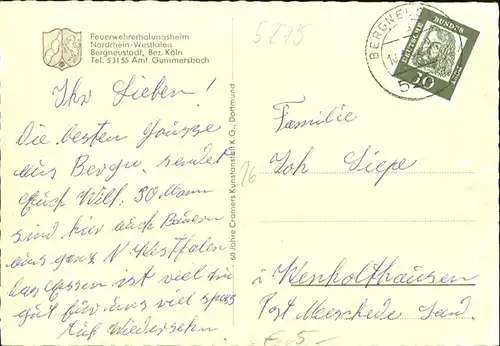 Feuerwehrerholungsheim
Nordrhein-Westfalen
Bergneustadt, Bez. Köln
Tel. 53155 Amt Gummersbach
5275
BERGNEUS
DEUTSCHE BUNDESPOST
30
Ihr Lieben!
Die besten Grüsse
aus Bergn. sendet
Euch Wilf. 30 Mann
sind hier auch Bauern
aus ganz N Westfalen
das Essen ist viel zu
gut für uns viel spass
Auf Wiedersehn.
60 Jahre Cramers Kunstanstalt K.G., Dortmund
Familie
Joh
à Wenholthausen
Post Meschede Land.
5-